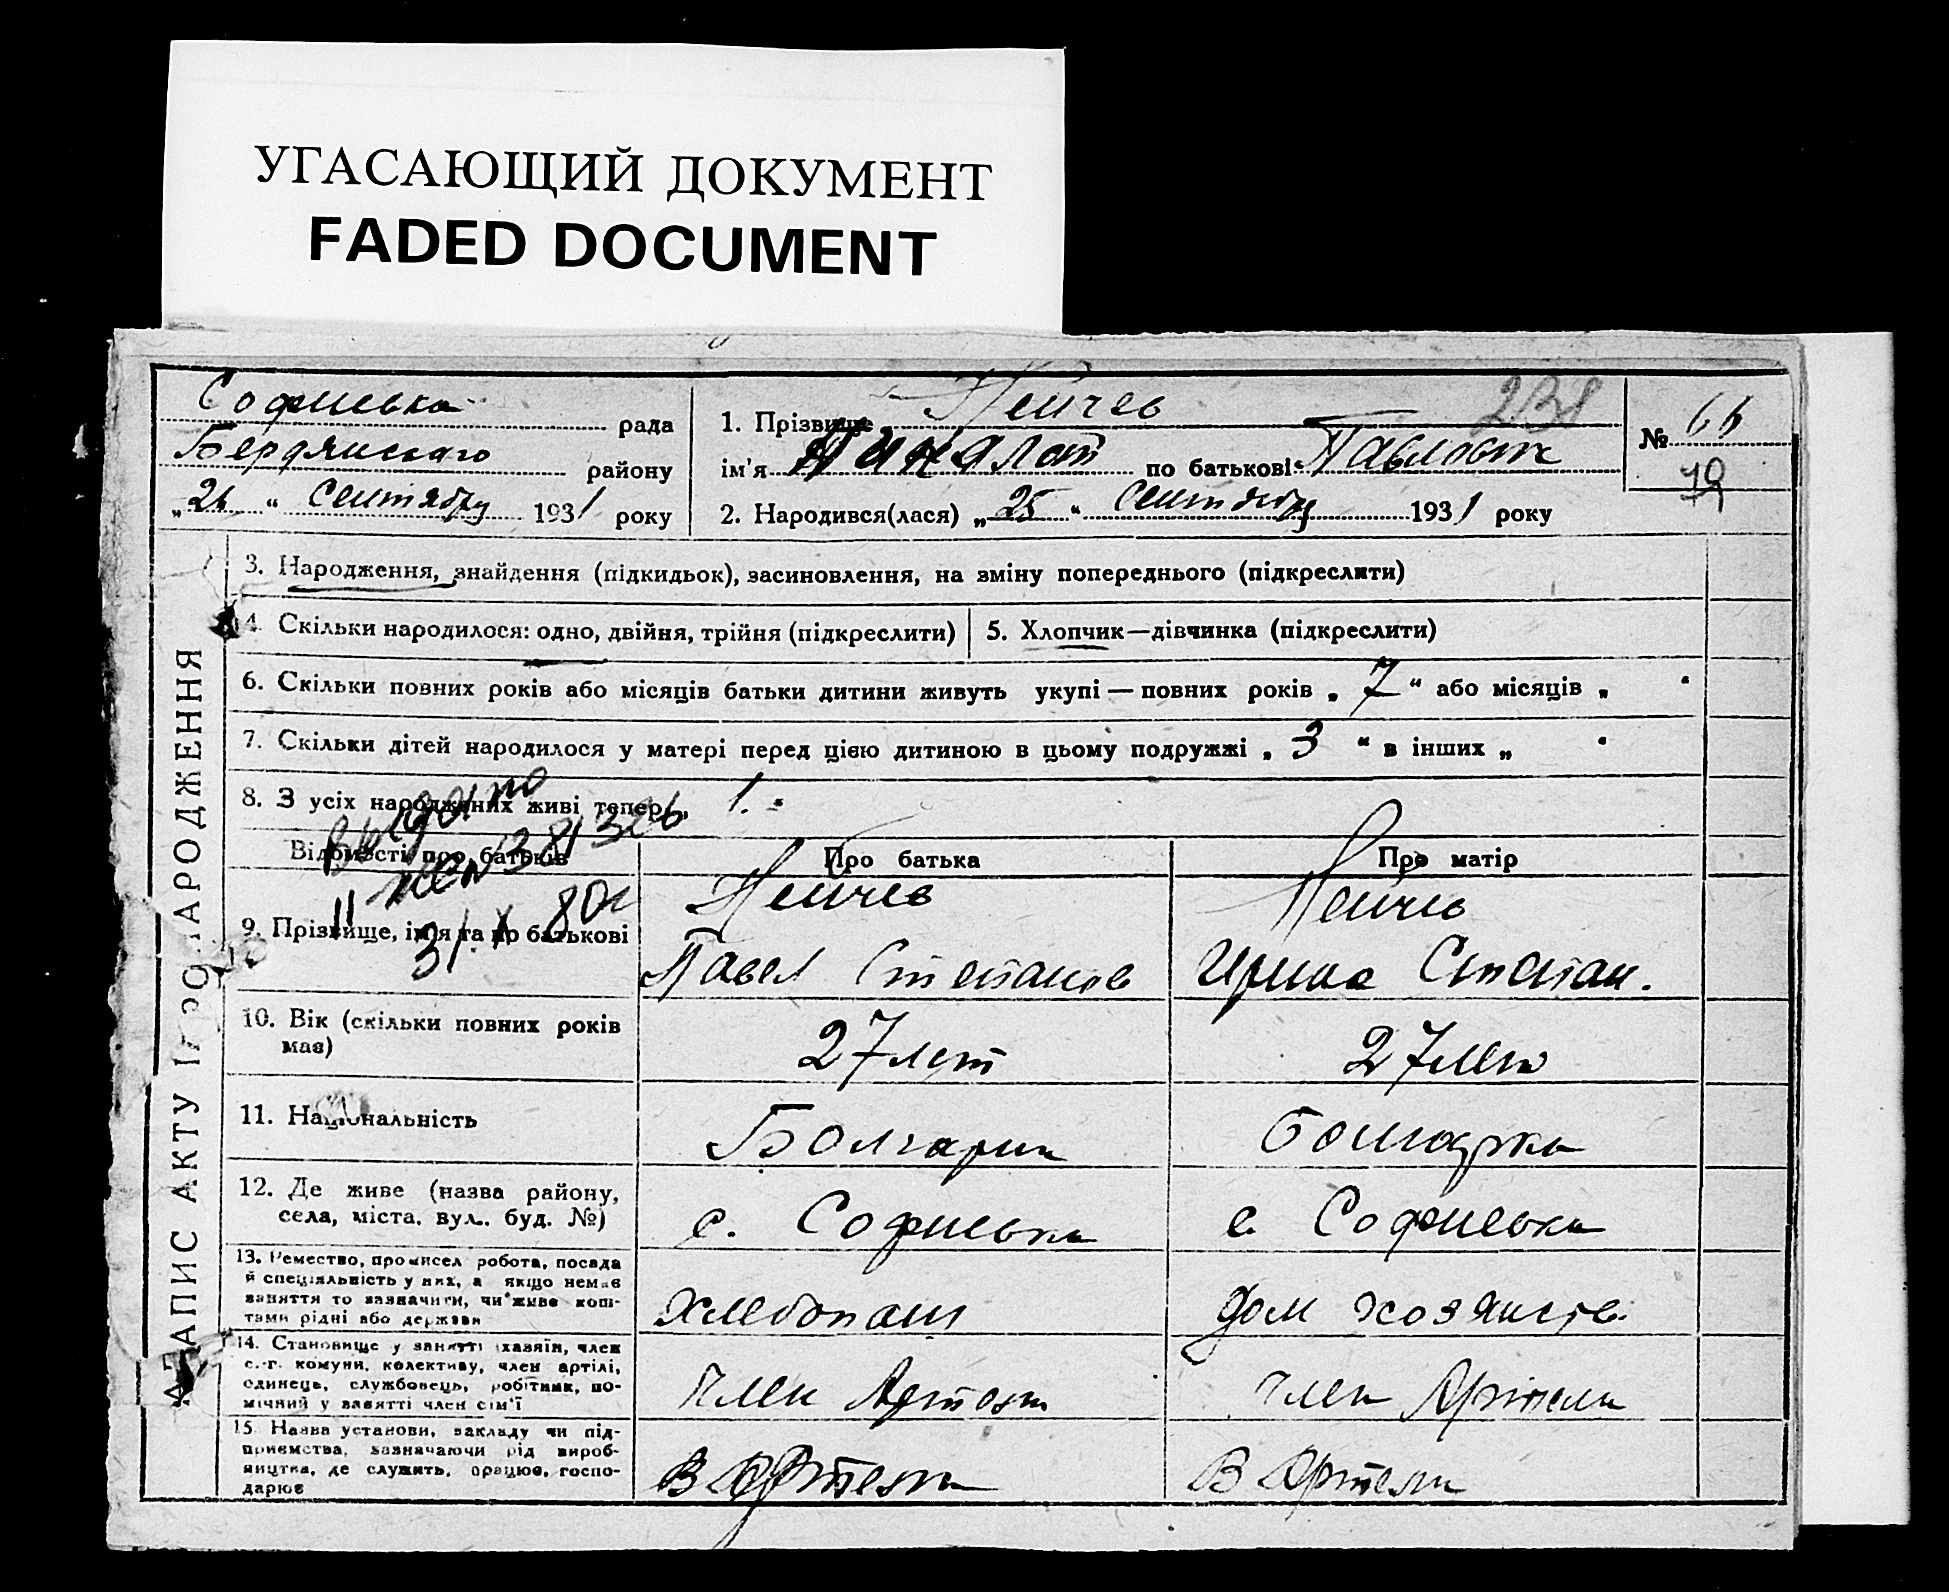 УГАСАЮЩИЙ ДОКУМЕНТ
FADED DOCUMENT
Софиевка рада
Бердянскаго району
„26“ Сентябру 1931 року
1. Прізвище Пейчев
238
ім'я по батькові Павлович
2. Народився(лася) „25“ Сентябру 1931 року
№ 66
79
АЗАГС
ЗАПИС АКТУ ПРО НАРОДЖЕННЯ
3. Народження, знайдення (підкидьок), засиновлення, на зміну попереднього (підкреслити)
4. Скільки народилося: одно, двійня, трійня (підкреслити)
5. Хлопчик—дівчинка (підкреслити)
6. Скільки повних років або місяців батьки дитини живуть укупі — повних років „7“ або місяців „ “
7. Скільки дітей народилося у матері перед цією дитиною в цьому подружжі „3“ в інших „ “
8. З усіх народжених живі тепер „ 1. “
Выдано
381326
31.X 80г
Відомості про батьків
Про батька
Про матір
9. Прізвище, ім'я та по батькові
Пейчев
Павел Степанов
Пейчев
Ирина Степан.
10. Вік (скільки повних років
має)
27 лет
27 лет
11. Національність
Болгарин
Болгарка
12. Де живе (назва району,
села, міста, вул., буд. №)
с. Софиевка
с. Софиевка
13. Ремество, промисел робота, посада
й спеціяльність у них, а якщо немає
заняття то зазначити, чи живе кош-
тами рідні або держави
хлебопаш
дом хозяиств.
14. Становище у занятті (хазяїн, член
с.-г. комуни, колективу, член артілі,
одинець, службовець, робітник, по-
мічний у занятті член сім'ї
член Артели
член Артели
15. Назва установи, закладу чи під-
приємства, зазначаючи рід вироб-
ництва, де служить, працює, госпо-
дарює
В Артели
В Артели